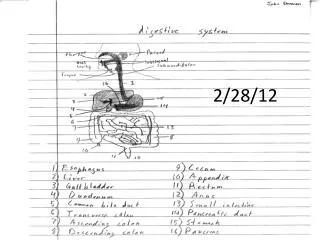 digestive system
Parotid
Sublingual
Submandibular
Tongue
2/28/12
1) Esophagus
2) Liver
3) Gallbladder
4) Duodenum
5) Common bile duct
6) Transverse colon
7) Ascending colon
8) Descending colon
9) Cecum
10) Appendix
11) Rectum
12) Anus
13) Small intestine
14) Pancreatic duct
15) Stomach
16) Pancreas